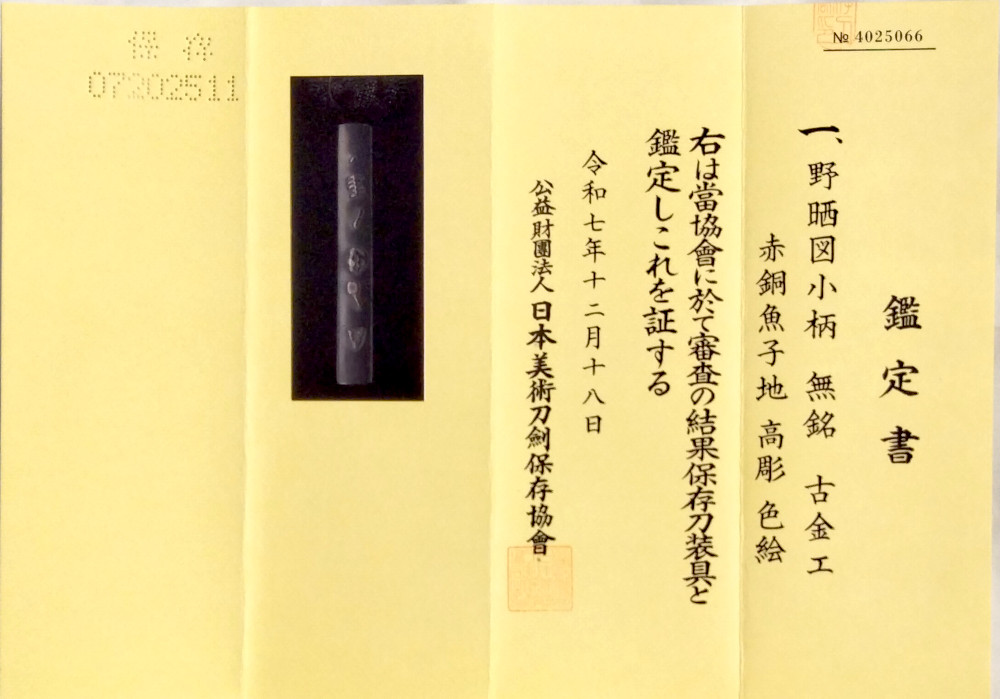 № 4025066
鑑定書
一、野晒図小柄 無銘 古金工
赤銅魚子地 高彫 色絵
右は當協會に於て審査の結果保存刀装具と
鑑定しこれを証する
令和七年十二月十八日
公益財團法人 日本美術刀劍保存協會
保存
07202511